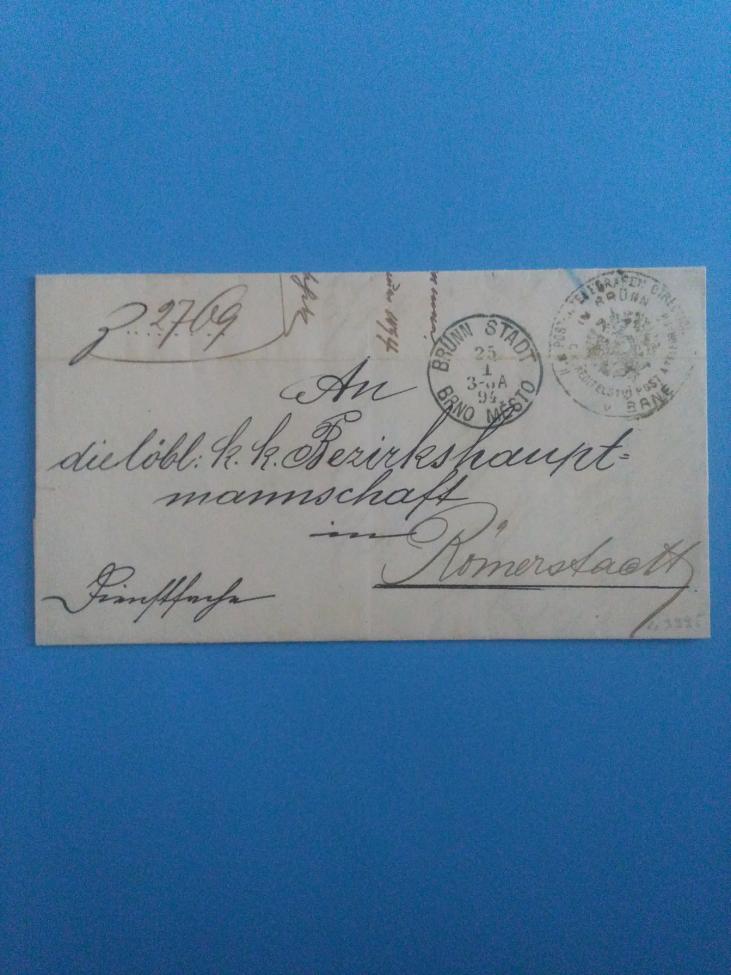 Z. 2769
BRÜNN STADT
25
1
94
BRNO MĚSTO
K.K. POST
TELEGRAFEN DIRECTION
IN BRÜNN
ŘEDITELSTVÍ POST A
V BRNĚ
An
die löbl: k. k. Bezirkshaupt=
mannschaft
in
Römerstadt
Dienstsache